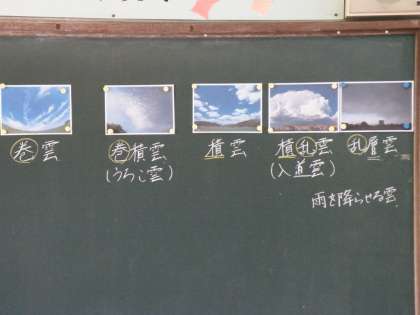 巻雲
巻積雲
(うろこ雲)
積雲
積乱雲
(入道雲)
乱層雲
雨を降らせる雲